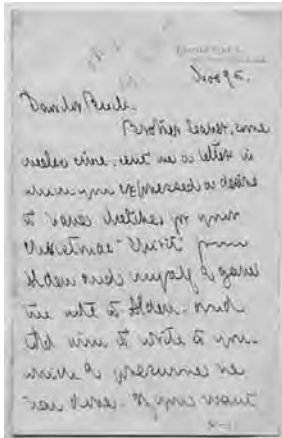 Nov 95.
Dear Mr Buck.
Brother Lester, some
weeks since, sent me a letter in
which you expressed a desire
to have sketches for your
Christmas "Unit" from
Alden and myself I gave
the note to Alden. and
told him to write to you.
which I presume he
has done. If you want